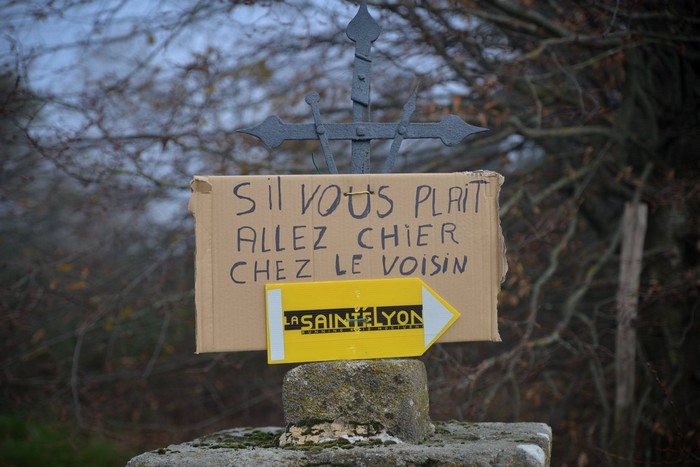 Sil VOUS PLAIT
ALLEZ CHIER
CHEZ LE VOISIN
LA SAINTELYON